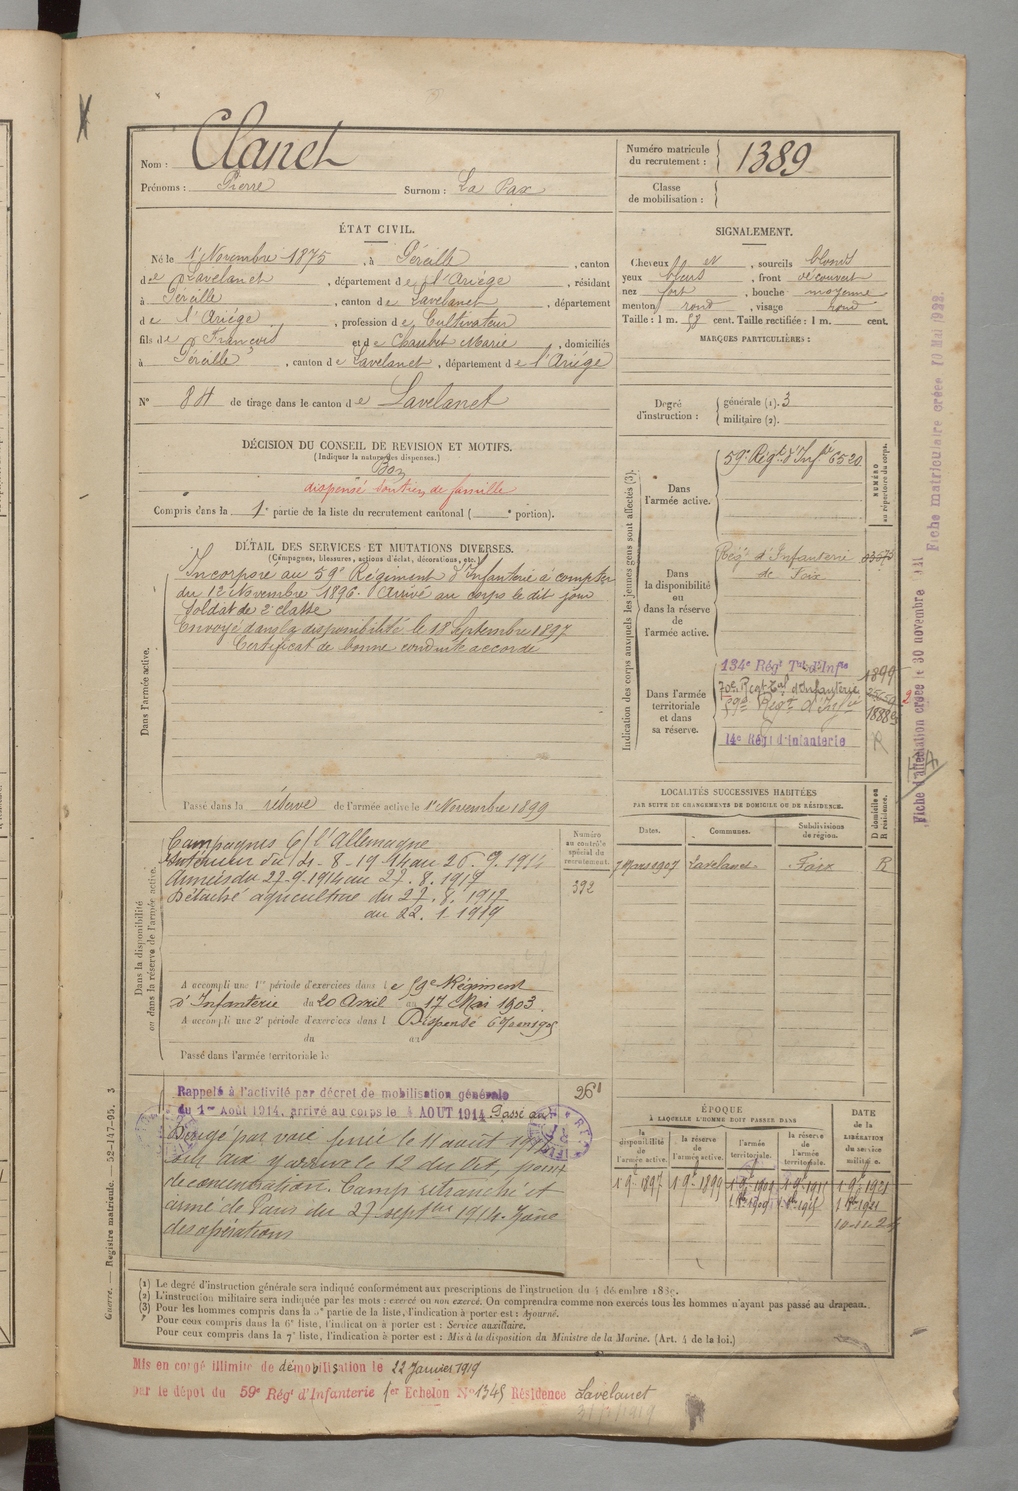 Nom : Clanet
Prénoms : Pierre Surnom : La Pax
Numéro matricule du recrutement : 1389
Classe de mobilisation :
ÉTAT CIVIL.
Né le 1er Novembre 1875, à Péreille, canton
de Lavelanet, département de l'Ariége, résidant
à Péreille, canton de Lavelanet, département
de l'Ariége, profession de Cultivateur
fils de François et de Chaubet Marie, domiciliés
à Péreille, canton de Lavelanet, département de l'Ariége
N° 84 de tirage dans le canton de Lavelanet
SIGNALEMENT.
Cheveux , sourcils blonds
yeux bleus, front découvert
nez fort, bouche moyenne
menton rond, visage rond
Taille : 1 m. 58 cent. Taille rectifiée : 1 m. cent.
MARQUES PARTICULIÈRES :
Degré d'instruction : générale (1). 3
militaire (2).
DÉCISION DU CONSEIL DE REVISION ET MOTIFS.
(Indiquer la nature des dispenses.)
Bon
dispensé soutien de famille
Compris dans la 1e partie de la liste du recrutement cantonal ( e portion).
DÉTAIL DES SERVICES ET MUTATIONS DIVERSES.
(Campagnes, blessures, actions d'éclat, décorations, etc.)
Dans l'armée active.
Incorporé au 59e Régiment d'Infanterie à compter
du 12 Novembre 1896. Arrivé au corps le dit jour
Soldat de 2e classe
Envoyé dans la disponibilité le 18 Septembre 1897
Certificat de bonne conduite accordé
Passé dans la réserve de l'armée active le 1er Novembre 1899
Indication des corps auxquels les jeunes gens sont affectés (3).
NUMÉRO au répertoire du corps.
Dans l'armée active. 59e Régt d'Infie 6520
Dans la disponibilité ou dans la réserve de l'armée active. Régt d'Infanterie de Foix
Dans l'armée territoriale et dans sa réserve.
134e Régt Tal d'Infie 1899
70e Regt Tal d'Infanterie
59e Regt d'Infie
14e Régt d'infanterie R
Dans la disponibilité ou dans la réserve de l'armée active.
Numéro au contrôle spécial du recrutement.
392
Campagnes C/ l'Allemagne
Intérieur du 4-8-1914 au 26-9-1914
Armées du 27-9-1914 au 27.8.1917
Détaché agriculture du 27.8.1917
au 22.1.1919
A accompli une 1re période d'exercices dans le 59e Régiment
d'Infanterie du 20 Avril au 17 Mai 1903.
A accompli une 2e période d'exercices dans l Dispensé
du au
Passé dans l'armée territoriale le
LOCALITÉS SUCCESSIVES HABITÉES
PAR SUITE DE CHANGEMENTS DE DOMICILE OU DE RÉSIDENCE.
Dates. Communes. Subdivisions de région. D domicile ou R résidence.
7 Mars 1907 Lavelanet Foix R
Rappelé à l'activité par décret de mobilisation générale
du 1er Août 1914, arrivé au corps le 4 AOUT 1914. Passé au
Dirigé par voie ferrée le 11 août 1914
y arriva le 12 du dit, point
de concentration. Camp retranché et
armé de Paris du 27 septbre 1914. Zône
des opérations
ÉPOQUE
À LAQUELLE L'HOMME DOIT PASSER DANS
la disponibilité de l'armée active. la réserve de l'armée active. l'armée territoriale. la réserve de l'armée territoriale.
DATE de la LIBÉRATION du service militaire.
(1) Le degré d'instruction générale sera indiqué conformément aux prescriptions de l'instruction du 4 décembre 1889.
(2) L'instruction militaire sera indiquée par les mots : exercé ou non exercé. On comprendra comme non exercés tous les hommes n'ayant pas passé au drapeau.
(3) Pour les hommes compris dans la 5e partie de la liste, l'indication à porter est : Ajourné.
Pour ceux compris dans la 6e liste, l'indication à porter est : Service auxiliaire.
Pour ceux compris dans la 7e liste, l'indication à porter est : Mis à la disposition du Ministre de la Marine. (Art. 4 de la loi.)
Mis en congé illimité de démobilisation le 22 Janvier 1919
par le dépot du 59e Régt d'Infanterie 1er Echelon N° 1345 Résidence Lavelanet
Guerre. — Registre matricule. 52-147-95. 3
Fiche matriculaire créée 10 Mai 1922.
Fiche d'affectation créée le 30 novembre